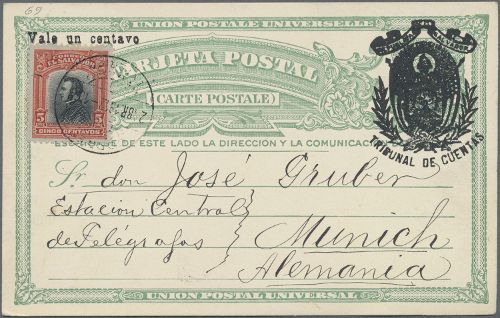 69
UNION POSTALE UNIVERSELLE
Vale un centavo
EL SALVADOR
5 5
CINCO CENTAVOS
TARJETA POSTAL
(CARTE POSTALE)
TRIBUNAL DE CUENTAS
ESCRIBASE DE ESTE LADO LA DIRECCION Y LA COMUNICACION
Sr. don José Gruber
Estacion Central
de Telégrafos
Munich
Alemania
UNION POSTAL UNIVERSAL